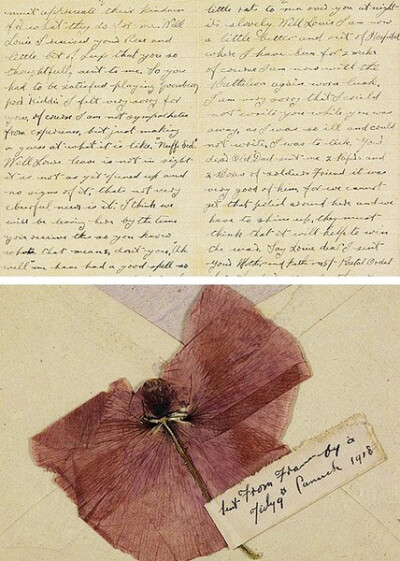 must appreciate their kindness
for what they do for me. Well
Louie I received your Rose and
little bit of that you so
thoughtfully sent to me. So you
had to be satisfied playing
poor Kiddie I felt very sorry for
you, of course I am not sympathetic
from experience, but just making
a guess at what it is like. "Nuffs Sed."
Well Louie leave is not in sight
it as not as yet opened up and
no signs of it, thats not very
cheerful news is it. I think we
will be leaving here by the time
you receive this so you know
what that means, don't you, "Ah
well" we have had a good spell so
little rats to run over you at night
it's lovely. Well Louie I am now
a little better and out of Hospital
where I have been for 2 weeks
of course I am now with the
Battalion again worse luck,
I am very sorry that I could
not write you while you was
away, as I was so ill and could
not write, I was to sick. Your
dear Old Dad sent me 2 and
2 Boxes of soldiers Friend it was
very good of him for we cannot
get that polish around here and we
have to shine up, they must
think that it will help to win
the war. Say Louie dear I sent
your Mother and Father Postal Order
sent From France by a
July 9th 1918